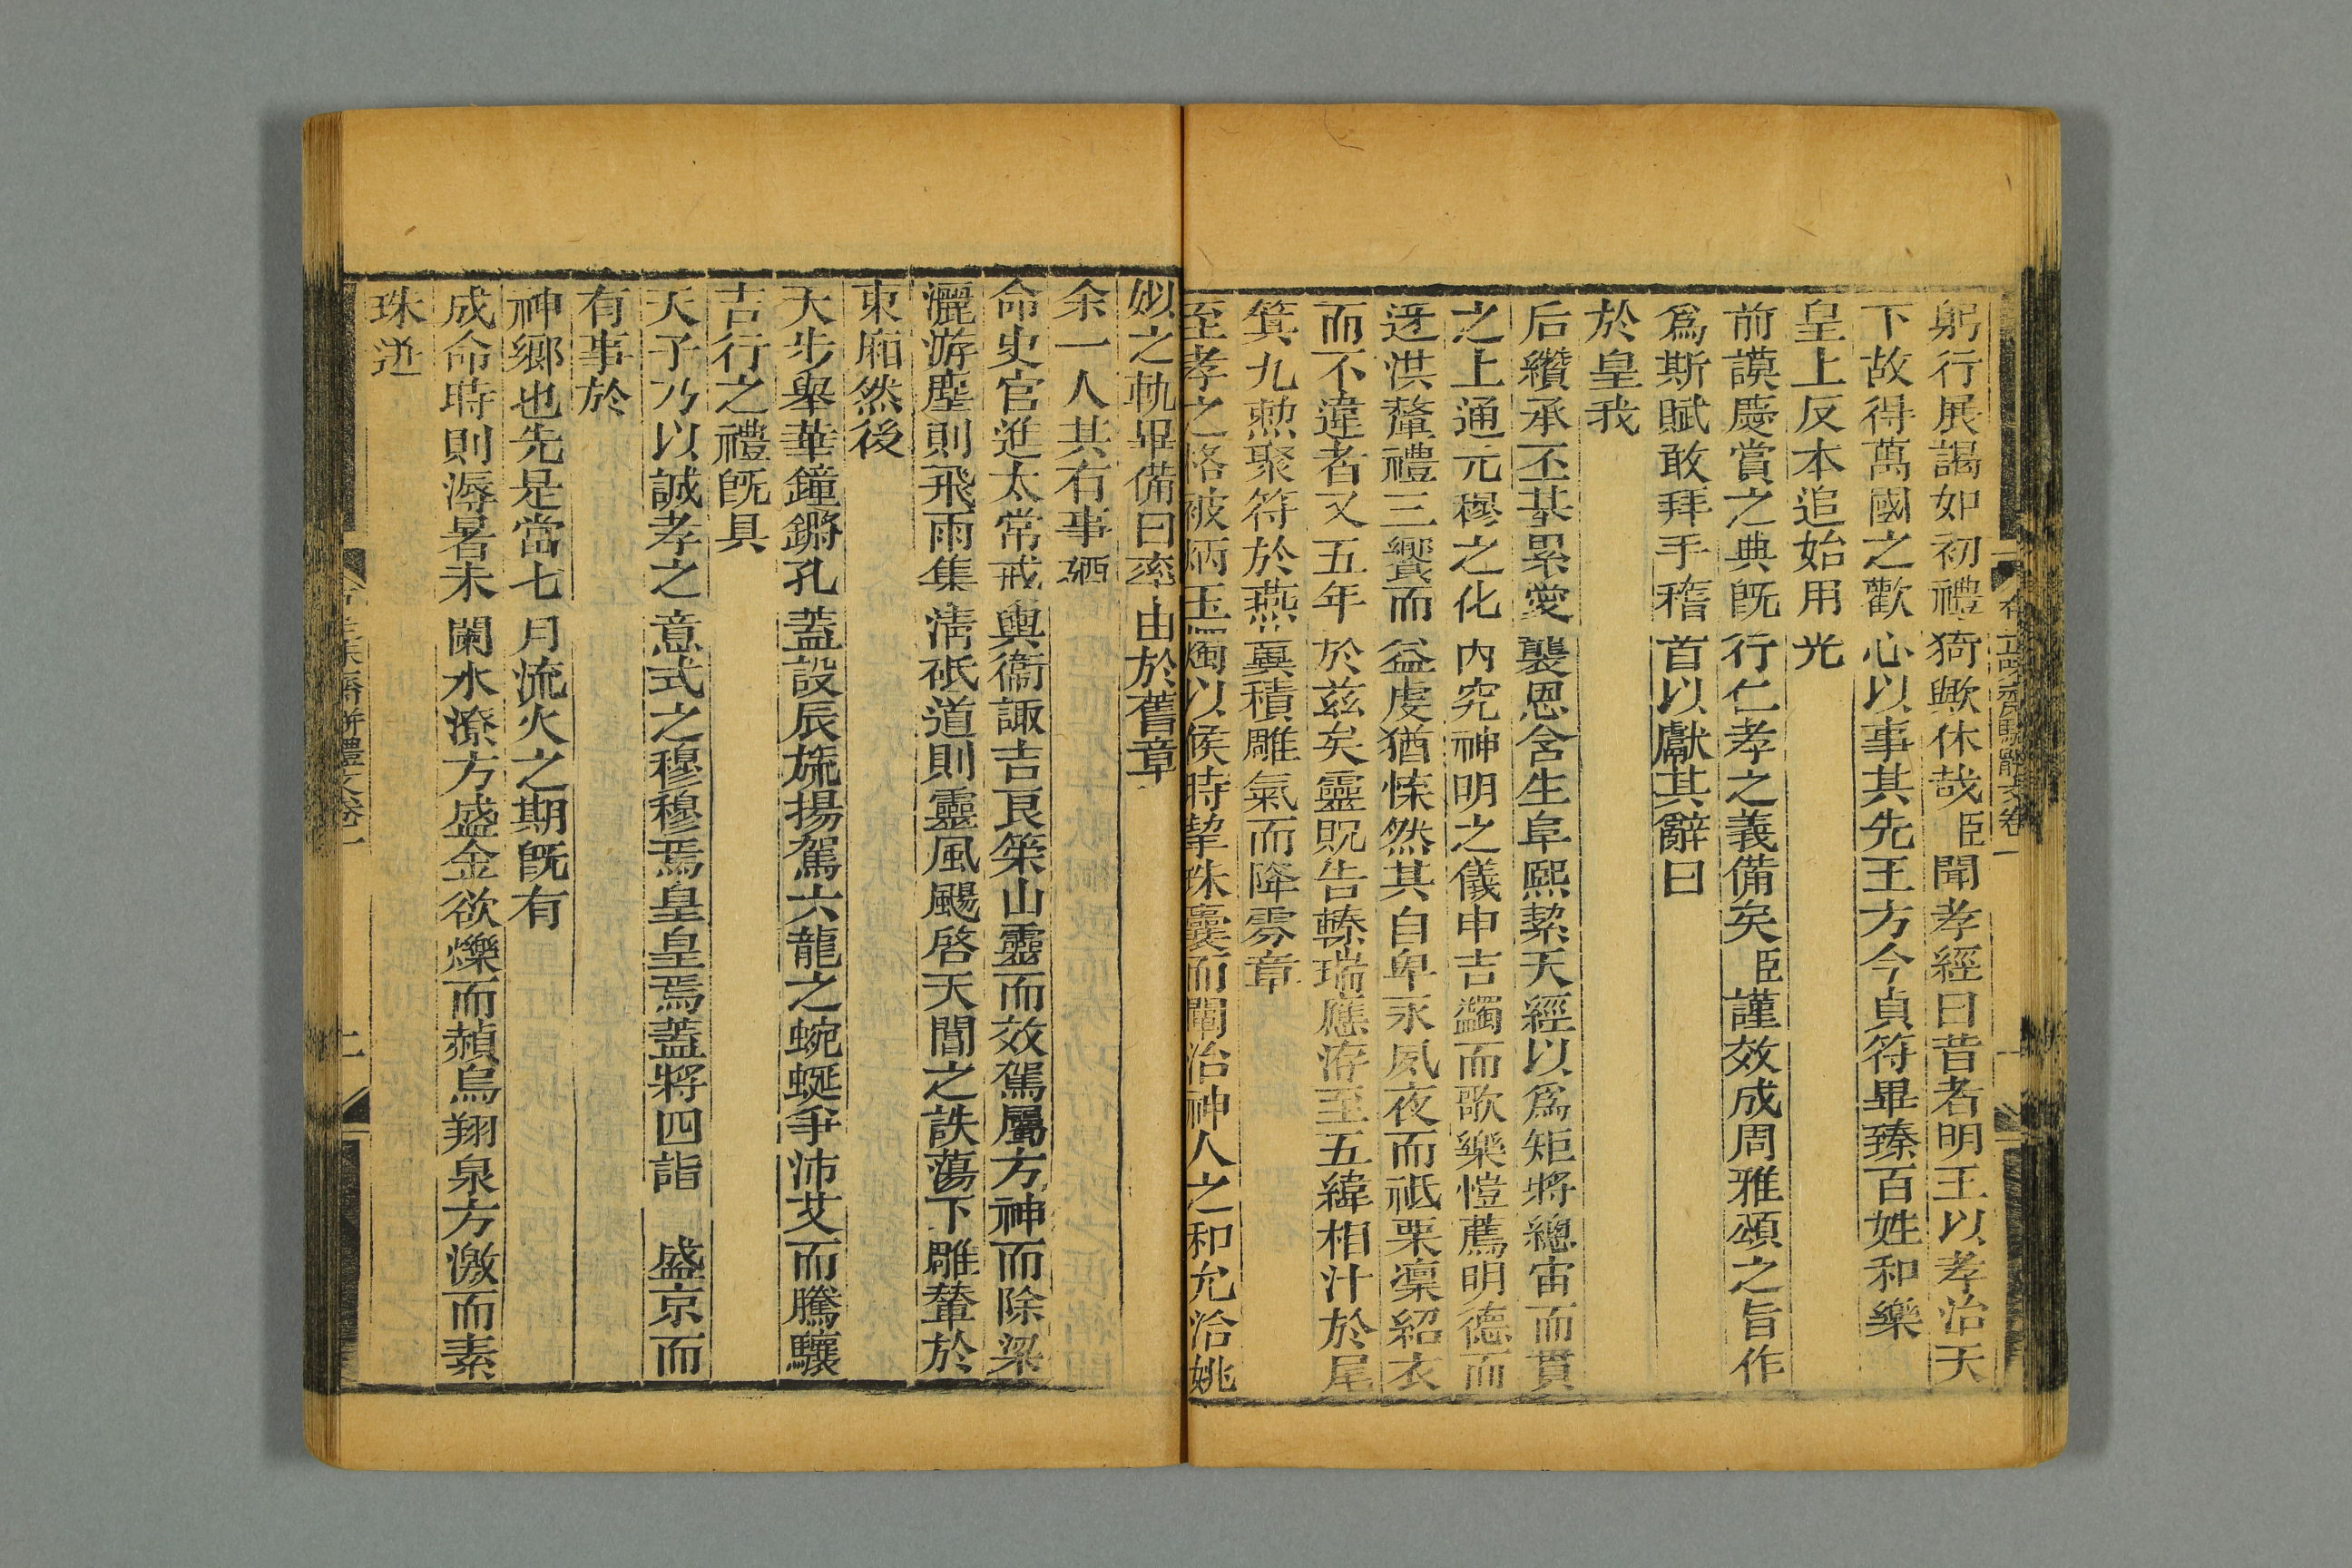 躬行展謁如初禮猗歟休哉臣聞孝經曰昔者明王以孝治天
下故得萬國之歡心以事其先王方今貞符畢臻百姓和樂
皇上反本追始用光
前謨慶賞之典既行仁孝之義備矣臣謹效成周雅頌之旨作
爲斯賦敢拜手稽首以獻其辭曰
於皇我
后纘承丕基累愛襲恩含生阜熙絜天經以爲矩將總宙而貫
之上通元穆之化內究神明之儀申吉蠲而歌樂愷薦明德而
迓洪釐禮三饗而益虔猶悚然其自卑永夙夜而祗栗凜紹衣
而不違者又五年於兹矣靈貺告臻瑞應洊至五緯相汁於尾
箕九勲聚符於燕冀積雕氣而降雰章
至孝之格被炳玉燭以候時挈珠囊而闡治神人之和允洽姚
姒之軌畢備曰率由於舊章
余一人其右事廼
命史官進太常戒輿衞諏吉良策山靈而效駕屬方神而除梁
灑游塵則飛雨集淸祇道則靈風颺啓天閶之詄蕩下雕輦於
東廂然後
天步舉華鐘鏘孔蓋設辰旒揚駕六龍之蜿蜒爭沛艾而騰驤
吉行之禮既具
天子乃以誠孝之意式之穆穆焉皇皇焉蓋將四詣 盛京而
有事於
神鄉也先是當七月流火之期既有
成命時則溽暑未闌水潦方盛金欲爍而赬烏翔泉方激而素
珠迸
有正味齋駢體文卷一
二